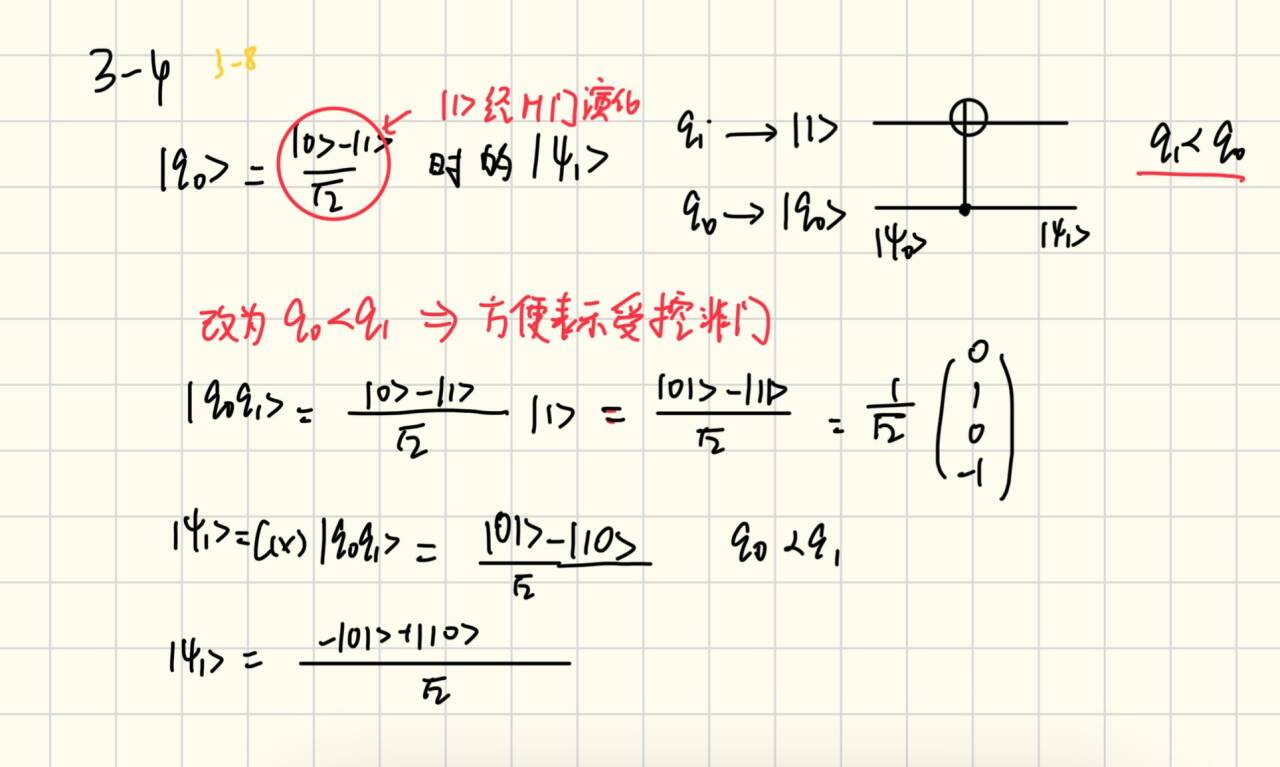 3-4 3-8
|1>经H门演化
|q₀> = |0>-|1>/√2 时的|ψ₁>
q₁ → |1>
q₁<q₀
q₀ → |q₀>
|ψ₀> |ψ₁>
改为 q₀<q₁ ⇒ 方便表示受控非门
|q₀q₁> = |0>-|1>/√2 |1> = |01>-|11>/√2 = 1/√2 (0 1 0 -1)
|ψ₁>=C(x)|q₀q₁> = |01>-|10>/√2 q₀<q₁
|ψ₁> = -|01>+|10>/√2